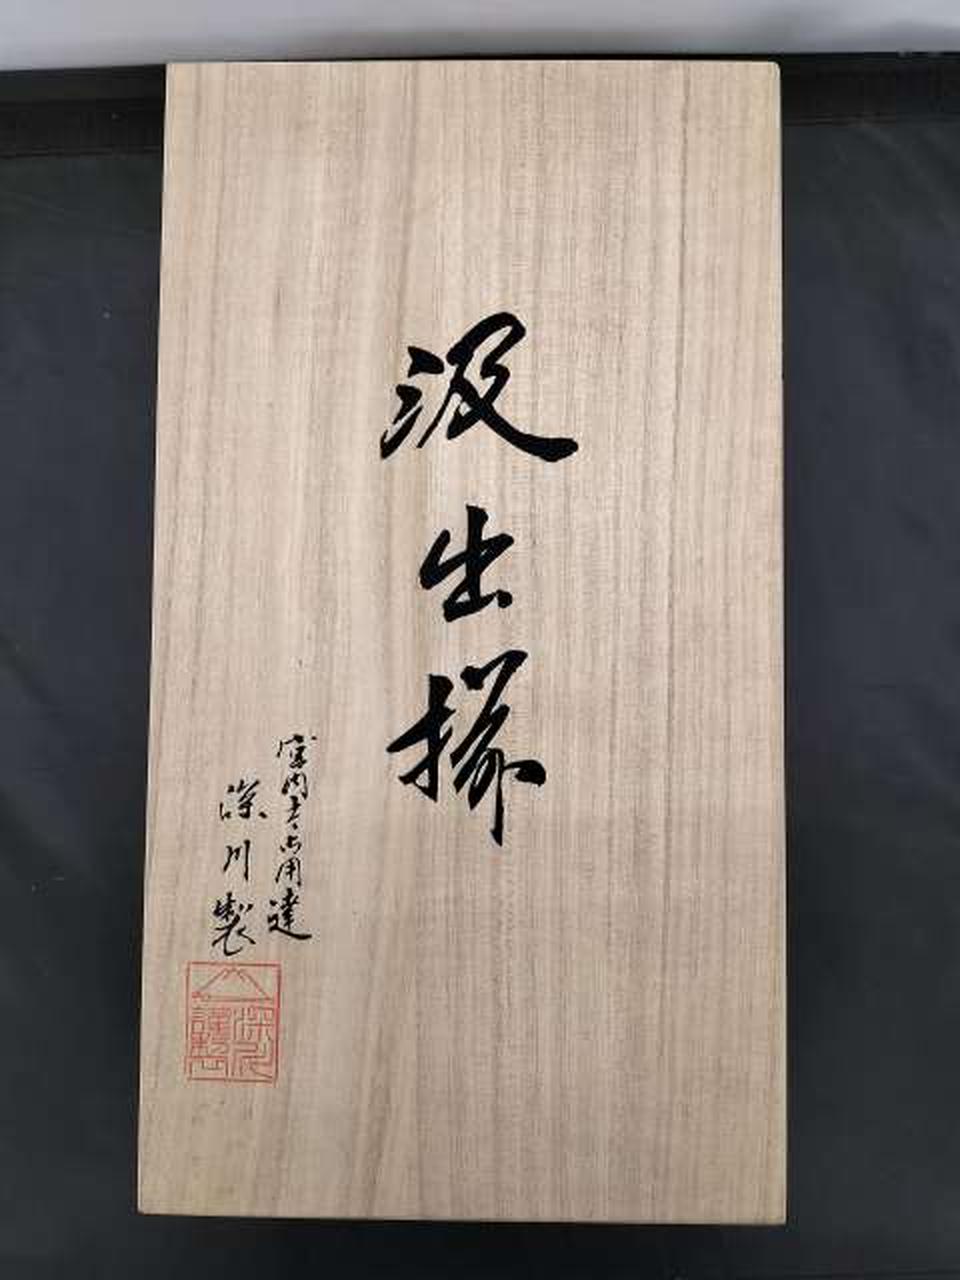 汲出揃
宮内庁御用達
深川製
深川
謹製